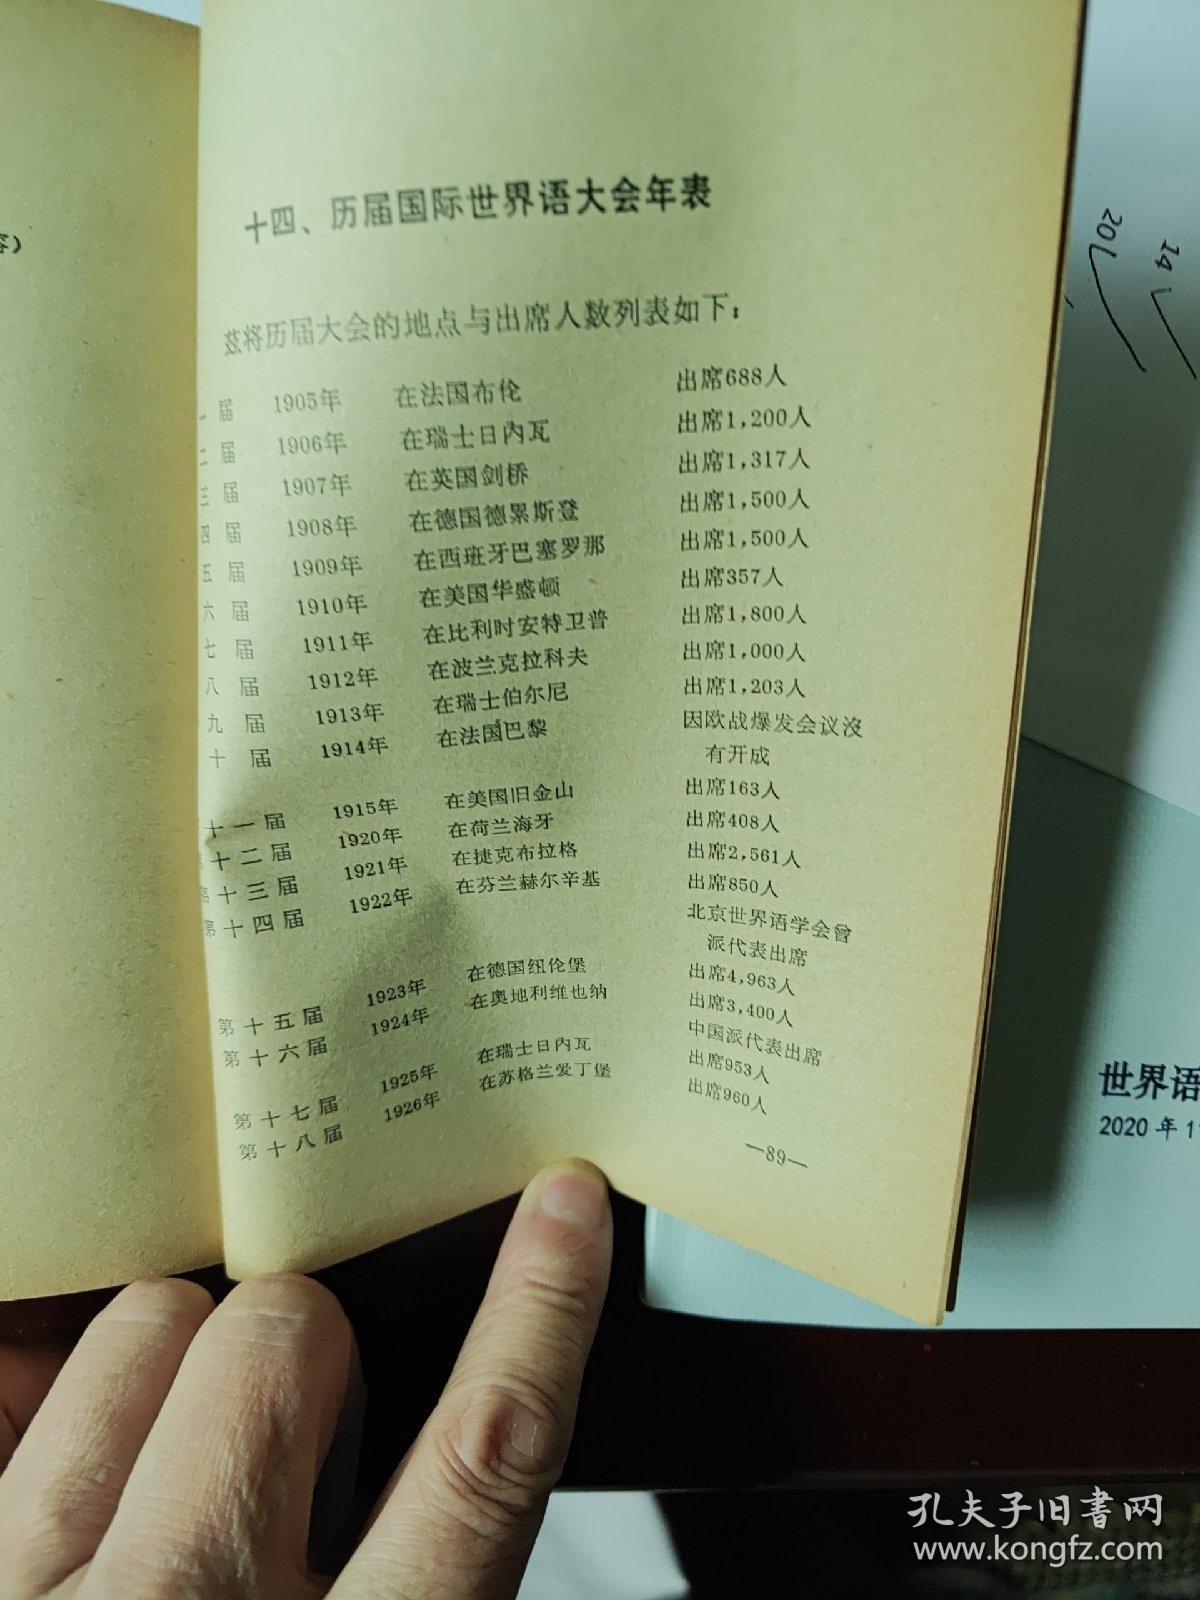 容）
十四、历届国际世界语大会年表
兹将历届大会的地点与出席人数列表如下：
一届 1905年 在法国布伦 出席688人
二届 1906年 在瑞士日内瓦 出席1,200人
三届 1907年 在英国剑桥 出席1,317人
四届 1908年 在德国德累斯登 出席1,500人
五届 1909年 在西班牙巴塞罗那 出席1,500人
六届 1910年 在美国华盛顿 出席357人
七届 1911年 在比利时安特卫普 出席1,800人
八届 1912年 在波兰克拉科夫 出席1,000人
九届 1913年 在瑞士伯尔尼 出席1,203人
十届 1914年 在法国巴黎 因欧战爆发会议没
有开成
十一届 1915年 在美国旧金山 出席163人
第十二届 1920年 在荷兰海牙 出席408人
第十三届 1921年 在捷克布拉格 出席2,561人
第十四届 1922年 在芬兰赫尔辛基 出席850人
北京世界语学会曾
派代表出席
第十五届 1923年 在德国纽伦堡 出席4,963人
第十六届 1924年 在奥地利维也纳 出席3,400人
中国派代表出席
第十七届 1925年 在瑞士日内瓦 出席953人
第十八届 1926年 在苏格兰爱丁堡 出席960人
—89—
201
14
世界语
2020 年 1
孔夫子旧書网
www.kongfz.com